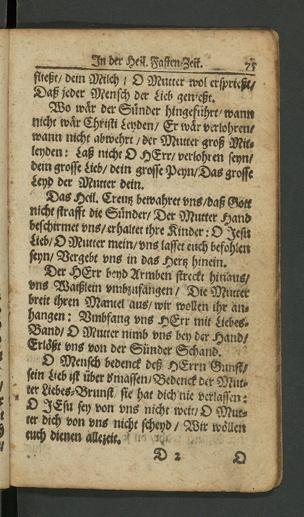 In der Heil. Fasten-Zeit. 75
fließt/ dein Milch/ O Mutter wol ersprießt/
Daß jeder Mensch der Lieb genießt.
Wo wär der Sünder hingeführt/ wann
nicht wär Christi Leyden/ Er wär verlohren/
wann nicht abwehrt/ der Mutter groß Mit-
leyden: Laß nicht O HErr/ verlohren seyn/
dein grosse Lieb/ dein grosse Peyn/ Das grosse
Leyd der Mutter dein.
Das Heil. Creutz bewahret vns/ daß Gott
nicht strafft die Sünder/ Der Mutter Hand
beschirmet vns/ erhaltet ihre Kinder: O Jesu
Lieb/ O Mutter mein/ vns lasset euch befohlen
seyn/ Vergebt vns in das Hertz hinein.
Der HErr beyd Armben streckt hinaus/
vns Waißlein vmbzufangen/ Die Mutter
breit ihren Mantel aus/ wir wollen ihr an-
hangen: Vmbfang vns HErr mit Liebes-
Band/ O Mutter nimb vns bey der Hand/
Erlößt vns von der Sünder Schand.
O Mensch bedenck deß HErrn Gunst/
sein Lieb ist über d'massen/ Bedenck der Mut-
ter Liebes-Brunst/ sie hat dich nie verlassen:
O JEsu sey von vns nicht weit/ O Mut-
ter dich von vns nicht scheyd/ Wir wöllen
euch dienen allezeit.
D 2 O